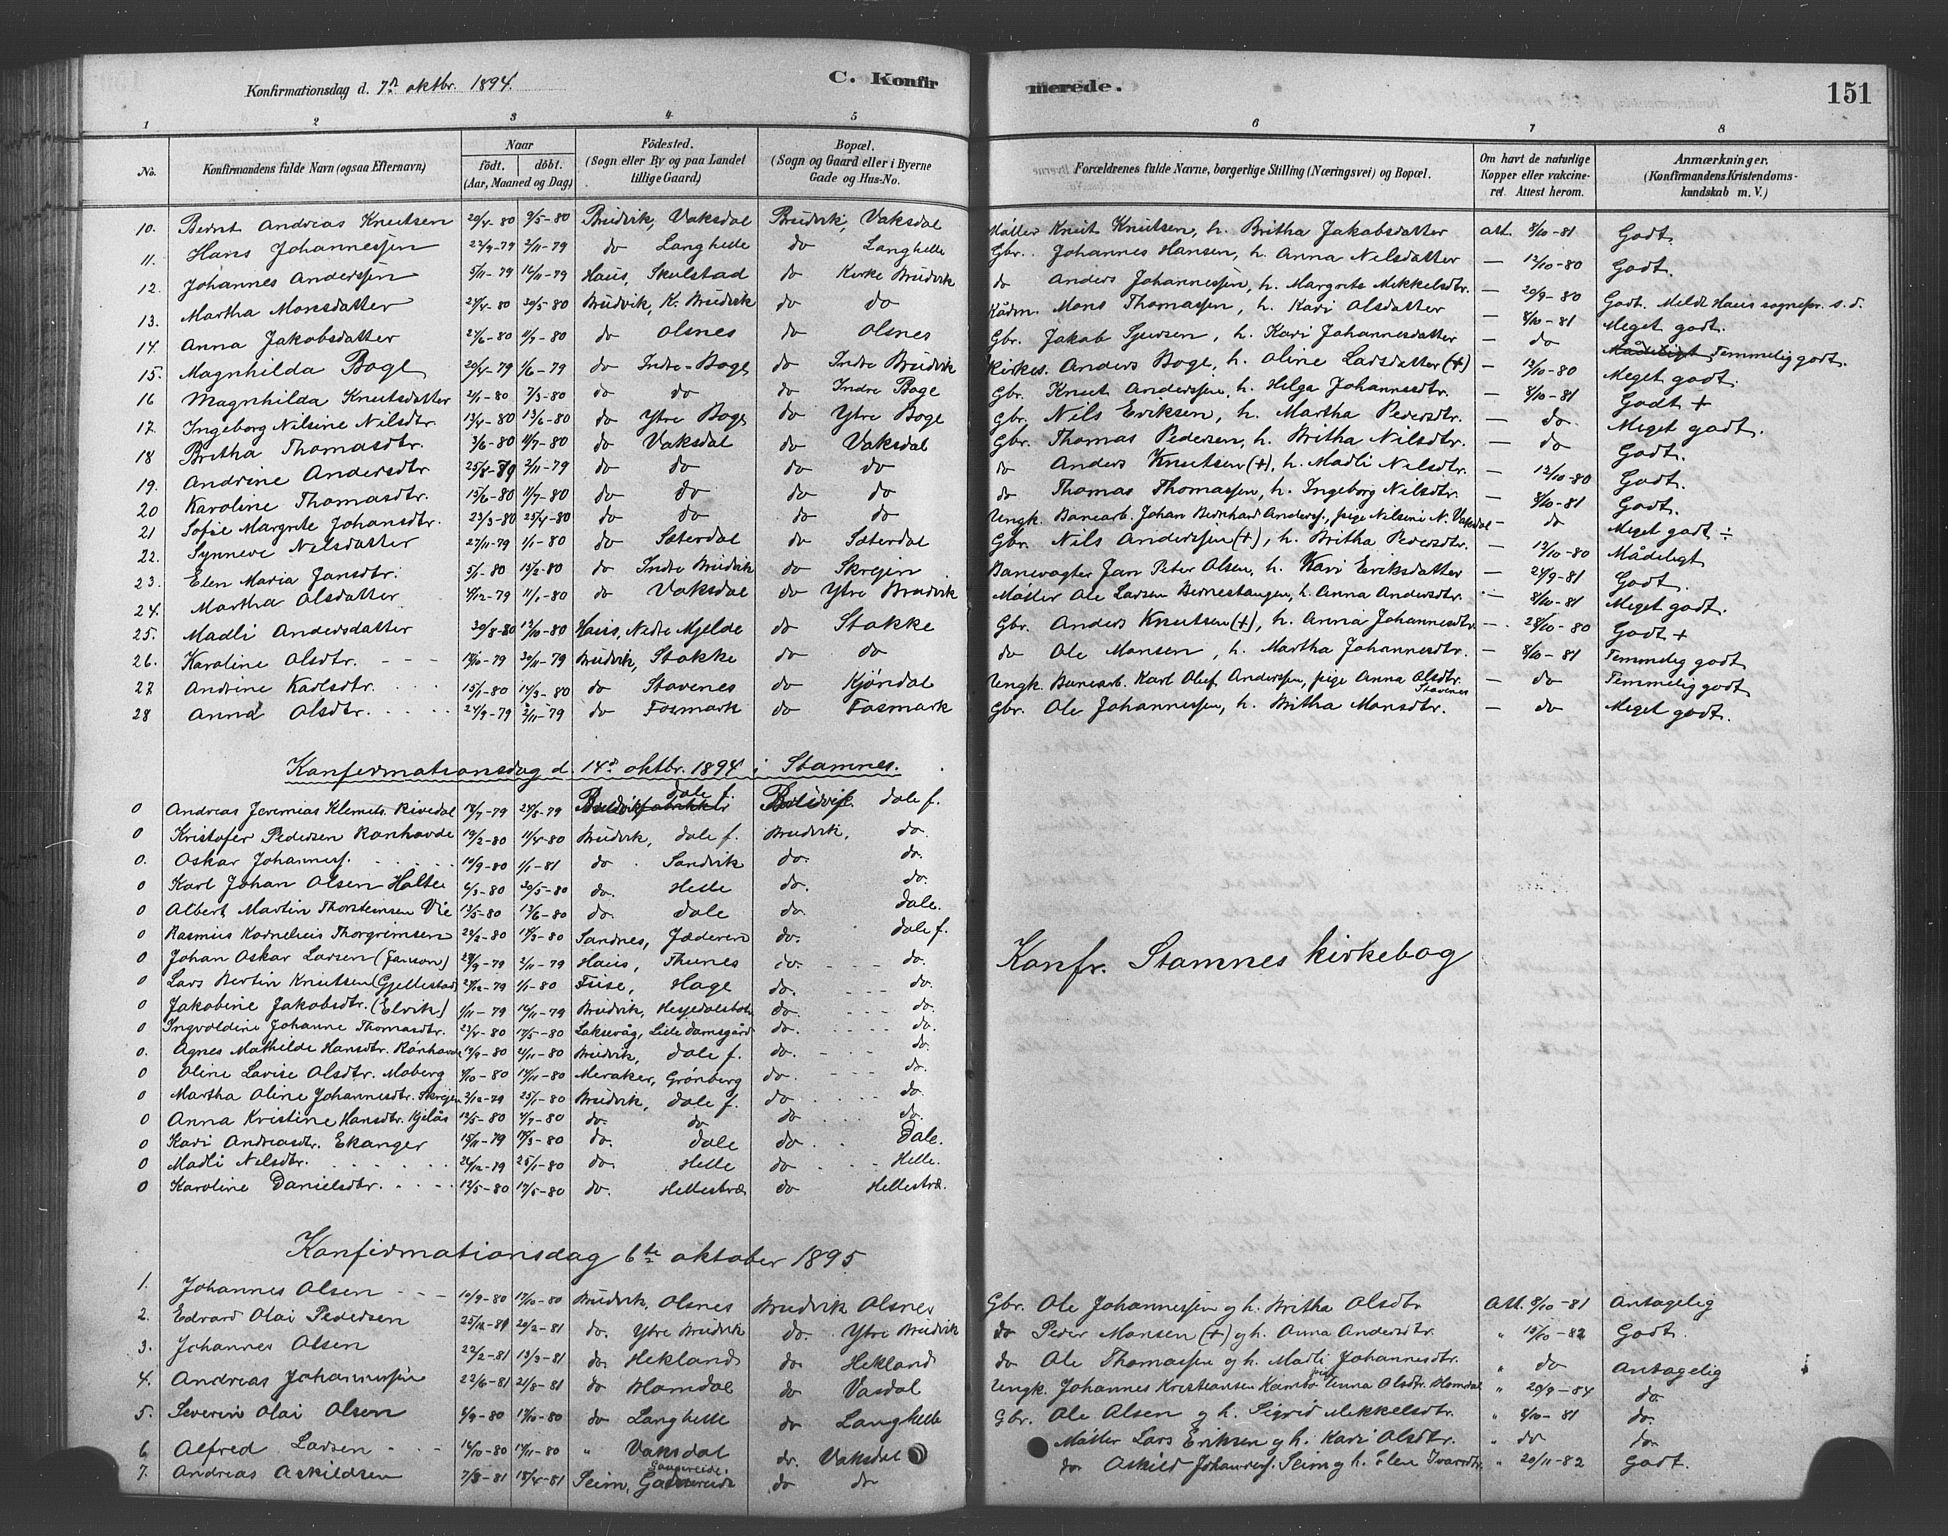 Konfirmationsdag d. 7de oktbr. 1894. C. Konfirmerede. 151
1 2 3 4 5 6 7 8
No. Konfirmandens fulde Navn (ogsaa Efternavn) Naar født. døbt. (Aar, Maaned og Dag) Födested. (Sogn eller By og paa Landet tillige Gaard) Bopæl. (Sogn og Gaard eller i Byerne Gade og Hus-No. Forældrenes fulde Navne, borgerlige Stilling (Næringsvei) og Bopæl. Om havt de naturlige Kopper eller vakcineret. Attest herom. Anmærkninger. (Konfirmandens Kristendomskundskab m. V.)
10. Bernt Andreas Knutsen 20/4-80 9/5-80 Brudvik, Vaksdal Brudvik, Vaksdal Møller Knut Knutsen, h. Britha Jakobsdatter att. 8/10-81 Godt.
11. Hans Johannessen 22/9-79 2/11-79 do Langhelle do Langhelle Gbr. Johannes Hansen, h. Anna Nilsdatter — 12/10-80 Godt.
12. Johannes Anderssen 5/11-79 16/11-79 Haus, Skulstad do Kirke Brudvik do Anders Johannessen, h. Margrete Mikkelsdtr. — 20/9-80 Godt. Meldt Haus sognepr. s. d.
13. Martha Monsdatter 27/4-80 30/5-80 Brudvik, K. Brudvik do do Kådm. Mons Thomassen, h. Kari Olsdatter — 8/10-81 Meget godt.
14. Anna Jakobsdatter 27/6-80 11/7-80 do Olsnes do Olsnes Gbr. Jakob Sjursen, h. Kari Johannesdatter — do Mådeligt Temmelig godt.
15. Magnhilda Boge 20/4-79 1/6-79 do Indre-Boge do Indre Brudvik Kirkes. Anders Boge, h. Oline Larsdatter (+) — 12/10-80 Meget godt.
16 Magnhilda Knutsdatter 2/1-80 7/3-80 do do do Indre Boge Gbr. Knut Anderssen, h. Helga Johannesdtr. — 8/10-81 Godt +
17. Ingeborg Nilsine Nilsdtr. 13/4-80 13/6-80 do Ytre Boge do Ytre Boge Gbr. Nils Eriksen, h. Martha Pedersdtr. — do Meget godt.
18 Britha Thomasdtr. 3/6-80 4/7-80 do Vaksdal do Vaksdal Gbr. Thomas Pedersen, h. Britha Nilsdtr. — do Godt.
19. Andrine Andersdtr 25/8-79 2/11-79 do do do do do Anders Knutsen (+), h. Madli Nilsdtr. — 12/10-80 Godt.
20 Karoline Thomasdtr. 13/6-80 11/7-80 do do do do do Thomas Thomassen, h. Ingeborg Nilsdtr. — 8/10-81 Godt.
21 Sofie Margrete Johansdtr. 23/3-80 25/4-80 do do do do Ungk. Banearb. Johan Bernhard Anderss., pige Nilsine N. Vaksdal — do Meget godt ÷
22. Synneve Nilsdatter 27/11-79 1/1-80 do Sæterdal do Sæterdal Gbr. Nils Anderssen (+), h. Britha Pedersdtr. — 12/10-80 Mådeligt
23. Elen Maria Jansdtr. 5/1-80 15/2-80 do Indre Brudvik do Skrejen Banevogter Jan Peter Olsen, h. Kari Eriksdatter — 24/9-81 Godt.
24. Martha Olsdatter 4/12-79 11/1-80 do Vaksdal do Ytre Brudvik Møller Ole Larsen Bernestangen, h. Anna Andersdtr. 8/10-81 Meget godt.
25. Madli Andersdatter 30/8-80 12/10-80 Haus, Nedre Mjelde do Stokke Gbr. Anders Knutsen (+), h. Anna Johannesdtr. — 28/10-80 Godt +
26. Karoline Olsdtr. 19/10-79 30/11-79 Brudvik, Stokke do do do Ole Monsen, h. Martha Johannesdtr. — 8/10-81 Temmelig godt
27 Andrine Karlsdtr. 15/1-80 14/3-80 do Stavenes do Kjøndal Ungk. Banearb. Karl Oluf Anderssen, pige Anna Olsdtr. Stavenes — do Temmelig godt
28 Anna Olsdtr. 24/9-79 2/11-79 do Fosmark do Fosmark Gbr. Ole Johannessen, h. Britha Monsdtr. — do Meget godt.
Konfirmationsdag d. 14de oktbr. 1894 i Stamnes.
0 Andreas Jeremias Klemets. Rivedal 18/7-79 24/8-79 dale f. Brudvik dale f.
0 Kristofer Pedersen Ranhovde 19/2-80 11/4-80 Brudvik, dale f. Brudvik, do.
0. Oskar Johanness. 10/9-80 1/1-81 do. Sandvik do. do.
0 Karl Johan Olsen Halten 6/3-80 20/5-80 do. Helle do. do.
0 Albert Martin Thorsteinsen Vie 12/5-80 13/6-80 do. dale do. dale.
0 Rasmus Kornelius Thorgrimsen 22/2-80 17/3-80 Sandnes, Jæderen do. dale f.
0 Johan Oskar Larsen (Janson) 24/9-79 2/11-79 Haus, Thunes do. do.
0 Lars Bertin Knutsen (Gjellestad) 21/12-79 1/1-80 Fuse, Hage do. do.
0 Jakobine Jakobsdtr. (Elvik) 1/11-79 16/11-79 Brudvik, Hesjedalsbotn do. do.
0 Ingvoldine Johanne Thomasdtr. 23/4-80 17/5-80 Laksevåg, Lille Damsgård do. do.
0. Agnes Mathilde Hansdtr. Rånhovde 19/9-80 21/11-80 Brudvik, dale f. do. do.
0 Oline Lovise Olsdtr. Moberg 9/10-80 14/11-80 Meraker, Grønberg do. do.
0 Martha Oline Johannesdtr. Skrejen 2/12-79 25/1-80 Brudvik, dale f. do do.
0 Anna Kristine Hansdtr. Kjelås 12/5-80 4/7-80 do. do do do.
0 Kari Andreasdtr. Ekanger 18/11-79 17/5-80 do. dale do Dale.
0 Madli Nilsdtr. 26/12-79 25/1-80 do. Helle do Helle.
0 Karoline Danielsdtr. 12/5-80 17/5-80 do. Hellestræ do Hellestræ.
Konfr. Stamnes kirkebog
Konfirmationsdag 6te oktober 1895
1. Johannes Olsen 10/9-80 17/10-80 Brudvik, Olsnes Brudvik Olsnes Gbr. Ole Johannessen og h. Britha Olsdtr Att. 8/10-81 Antagelig
2. Edvard Olai Pedersen 25/12-80 20/2-81 do. Ytre Brudvik do. Ytre Brudvik do Peder Monsen (+) og h. Anna Andersdtr. " 15/10-82 Godt.
3. Johannes Olsen 22/2-81 13/3-81 do. Hekland do Hekland do Ole Thomassen og h. Madli Johannesdtr. " do Antagelig
4. Andreas Johannessen 22/6-81 21/8-81 do Homdal do Vasdal Ungk. Johannes Kristiansen Kambo, pige Anna Olsdtr. Homdal " 20/9-84 do.
5. Severin Olai Olsen 6/9-80 17/10-80 do Langhelle do Langhelle Gbr. Ole Olsen og h. Sigrid Mikkelsdtr. " 8/10-81 do.
6 Alfred Larsen 14/10-80 14/11-80 " Vaksdal do. Vaksdal Møller Lars Eriksen og h. Kari Olsdtr. " do do.
7. Andreas Askildsen 7/3-81 18/4-81 Seim, Gaustereide do do do Askild Johanness. Seim og h. Elen Ivarsdtr. " 20/11-82 Godt.